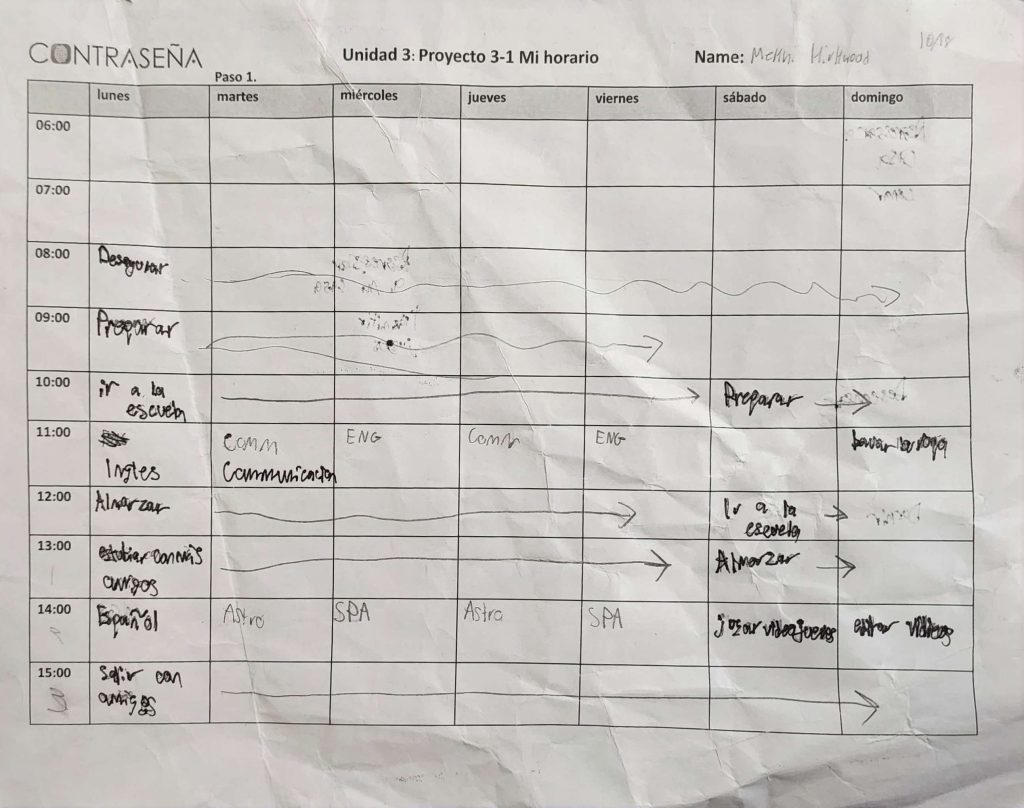 CONTRASEÑA
Unidad 3: Proyecto 3-1 Mi horario
Name:
10/18
Paso 1.
lunes martes miércoles jueves viernes sábado domingo
06:00
07:00
08:00 Desayunar
09:00 Preparar
10:00 ir a la escuela Preparar
11:00 Ingles Comm ENG Comm ENG lavar la ropa
Communicacion
12:00 Almorzar Ir a la escuela
13:00 estudiar con mis amigos Almorzar
14:00 Español Astro SPA Astro SPA jugar videojuegos
15:00 Salir con amigos
3